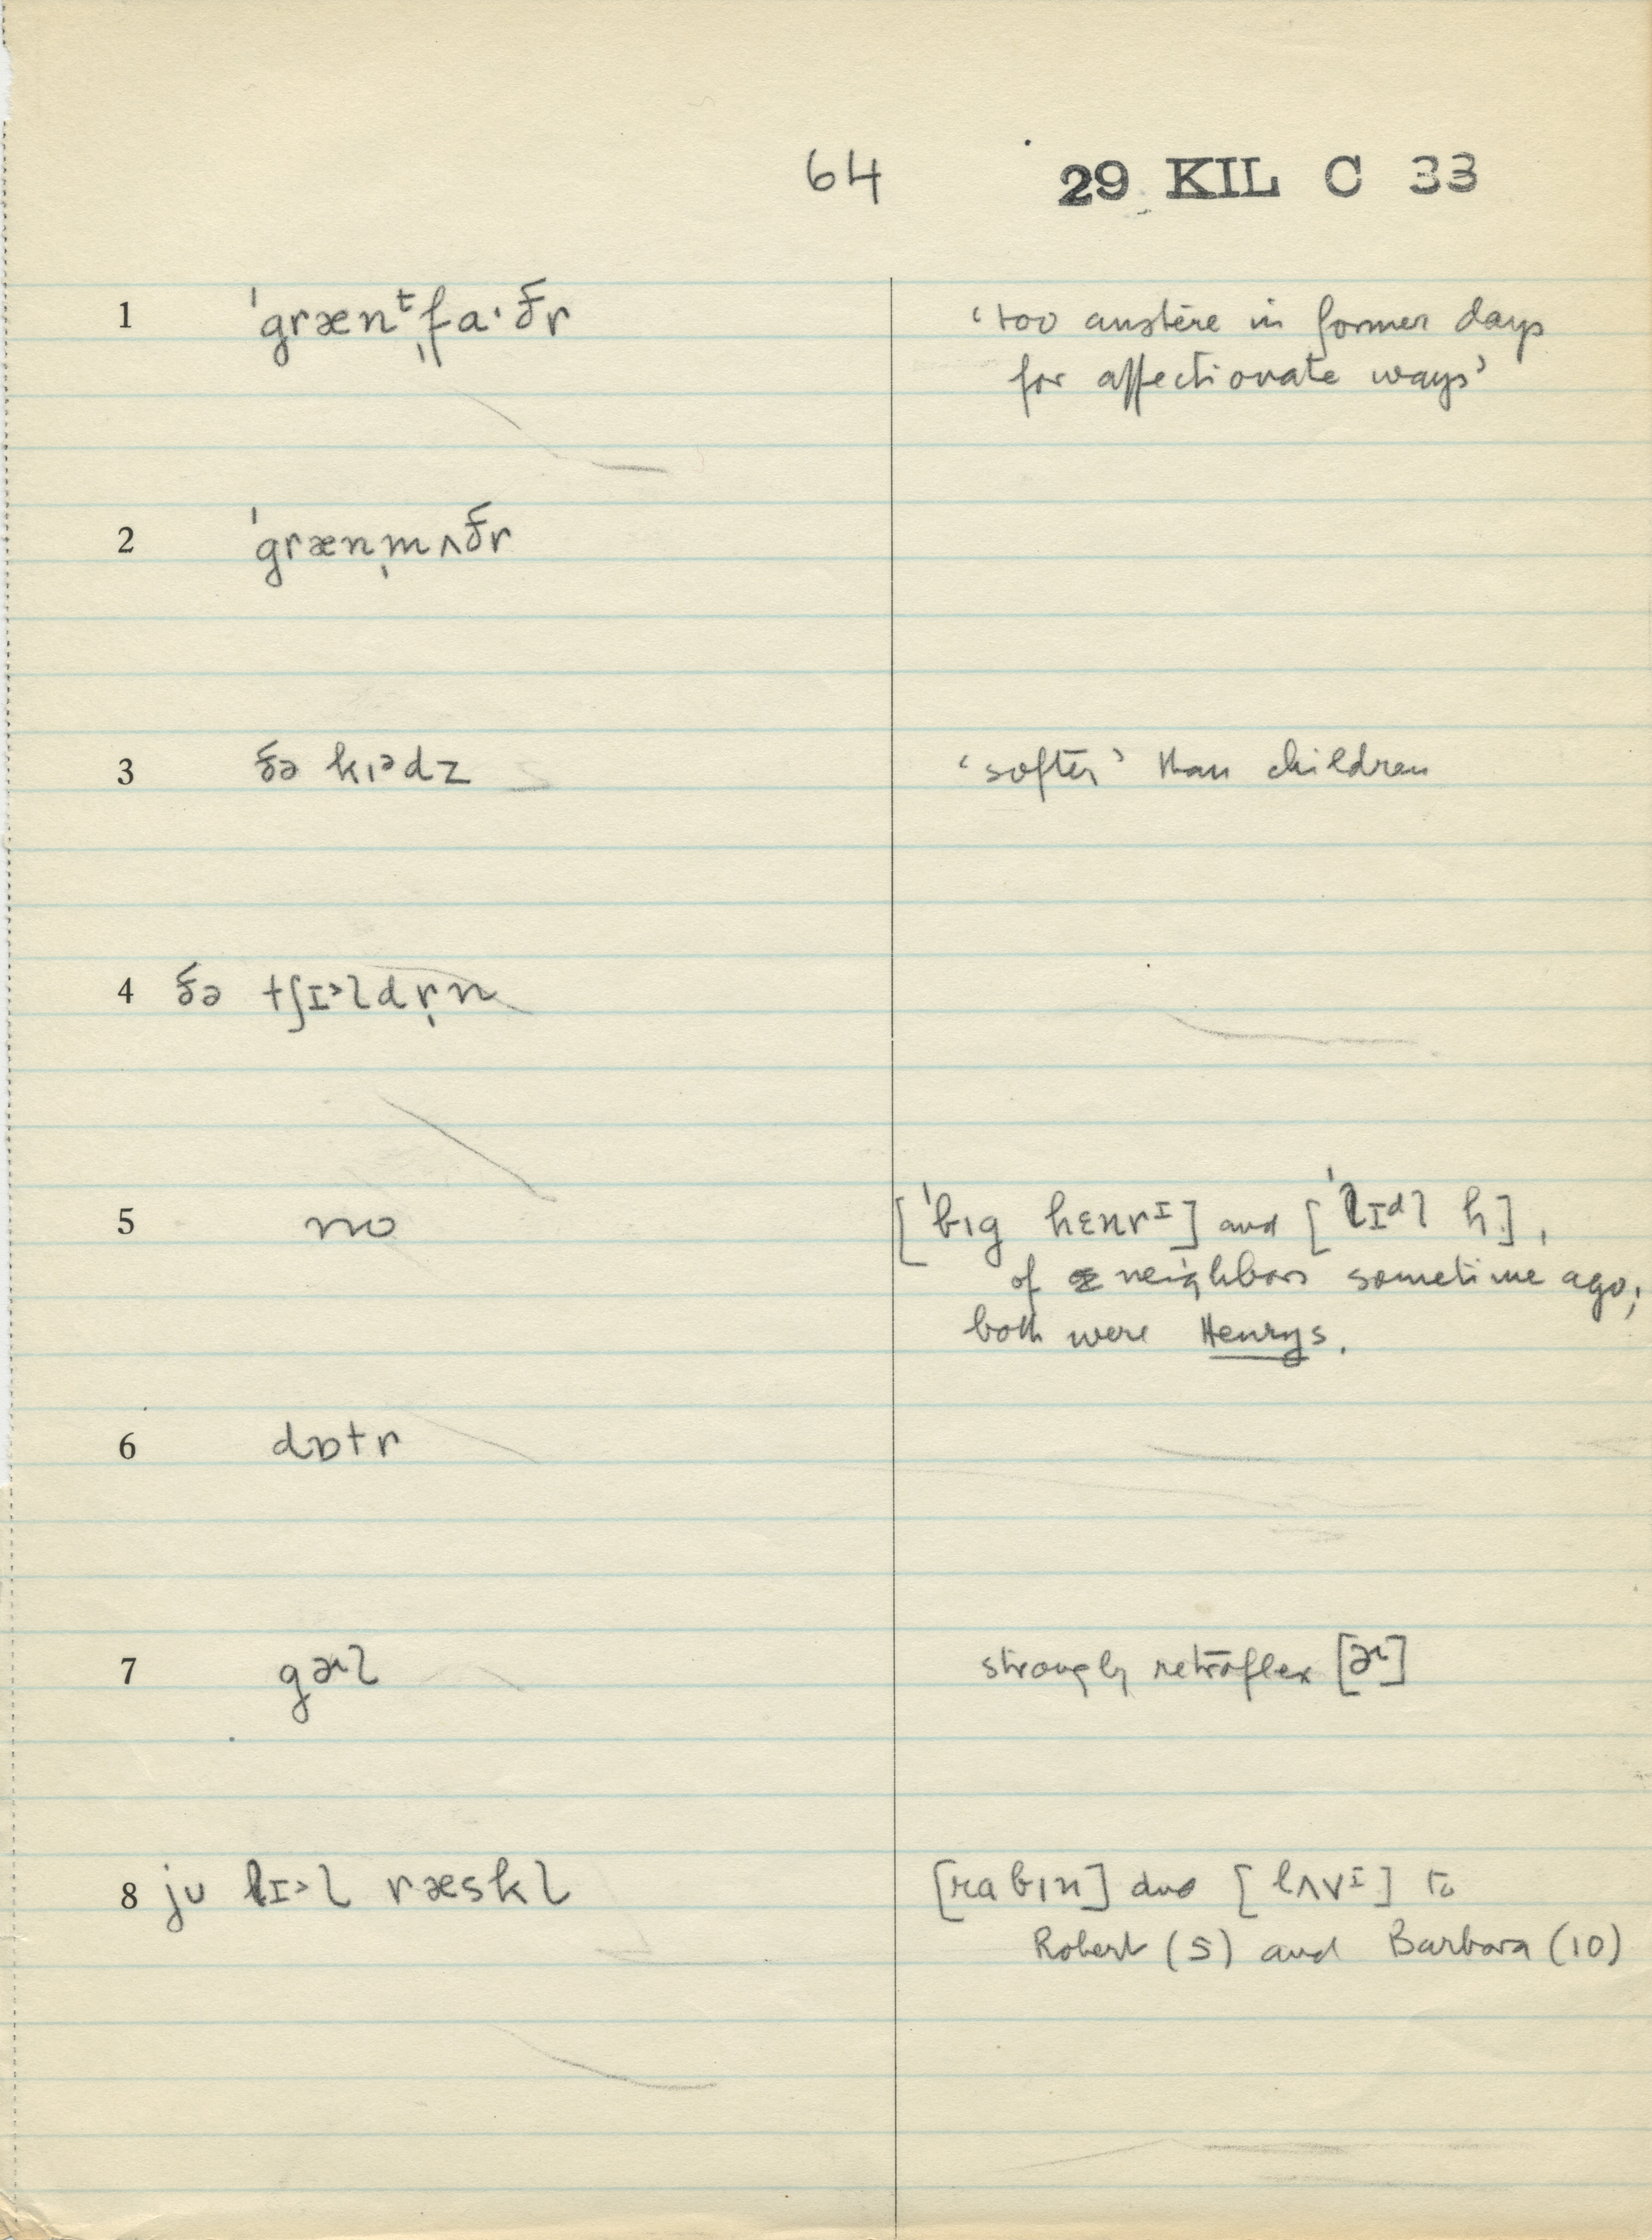 64 29 KIL C 33
1 ˈgrænᵗˌfaˑðr ‘too austere in former days
for affectionate ways’
2 ˈgrænˌmʌðr
3 ðə kɪᵊdz ‘softer’ than children
4 ðə tʃɪ˃ldr̩n
5 no [ˈbɪg hɛnrᴵ] and [ˈlɪᵈl h],
of neighbors sometime ago;
both were Henrys.
6 dɒtr
7 gɚl strongly retroflex [ɚ]
8 ju lɪ˃l ræskl [rabɪn] and [lʌvᴵ] to
Robert (5) and Barbara (10)